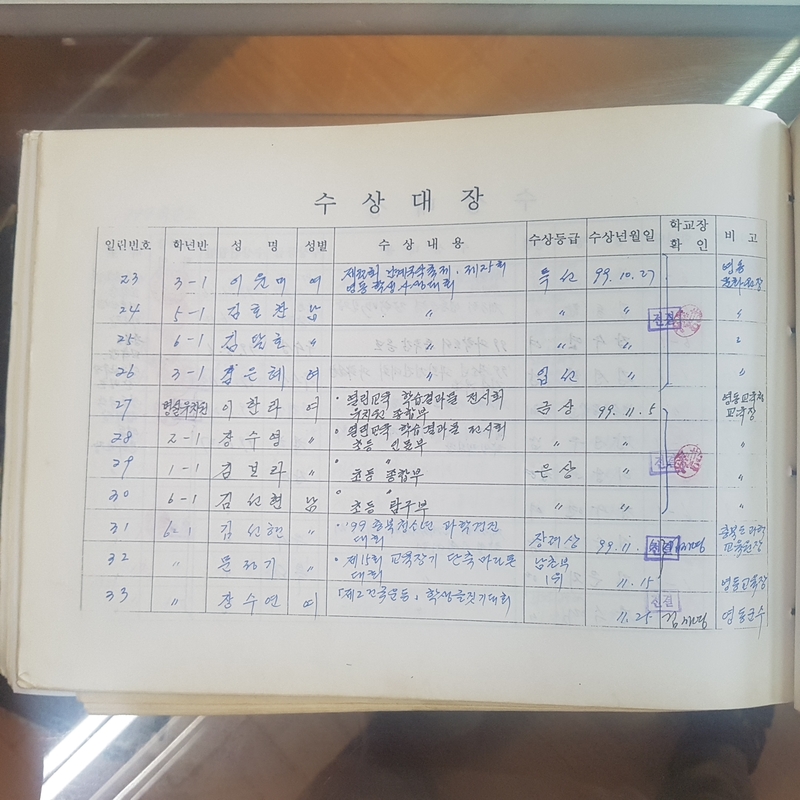 수 상 대 장
일련번호 학년반 성 명 성별 수 상 내 용 수상등급 수상년월일 학교장 확 인 비 고
23 3-1 여 제32회 난계국악축제, 제21회 특선 99.10.27 영동
영동 학생사생대회
24 5-1 남 〃 〃 〃 전결 〃
25 6-1 〃 〃 〃 〃 〃
26 3-1 은혜 여 〃 입선 〃 〃
27 이한라 여 열린교육 학습결과물 전시회 금상 99.11.5
유치원 종합부 교육장
28 2-1 장수영 〃 열린교육 학습결과물 전시회 〃 〃 〃
초등
29 1-1 김보라 〃 〃 은상 〃 전결 〃
초등 종합부
30 6-1 김선현 남 〃 〃 〃 〃
초등 탐구부
31 6-1 김선현 〃 '99 충북청소년 과학경진 장려상 99.11. 전결
대회 교육원장
32 〃 문정기 〃 제15회 교육장기 단축마라톤 남초부 11.15 영동교육장
대회 1위
33 〃 장수연 여 「제2건국운동」 학생글짓기대회 11.25 전결 영동군수